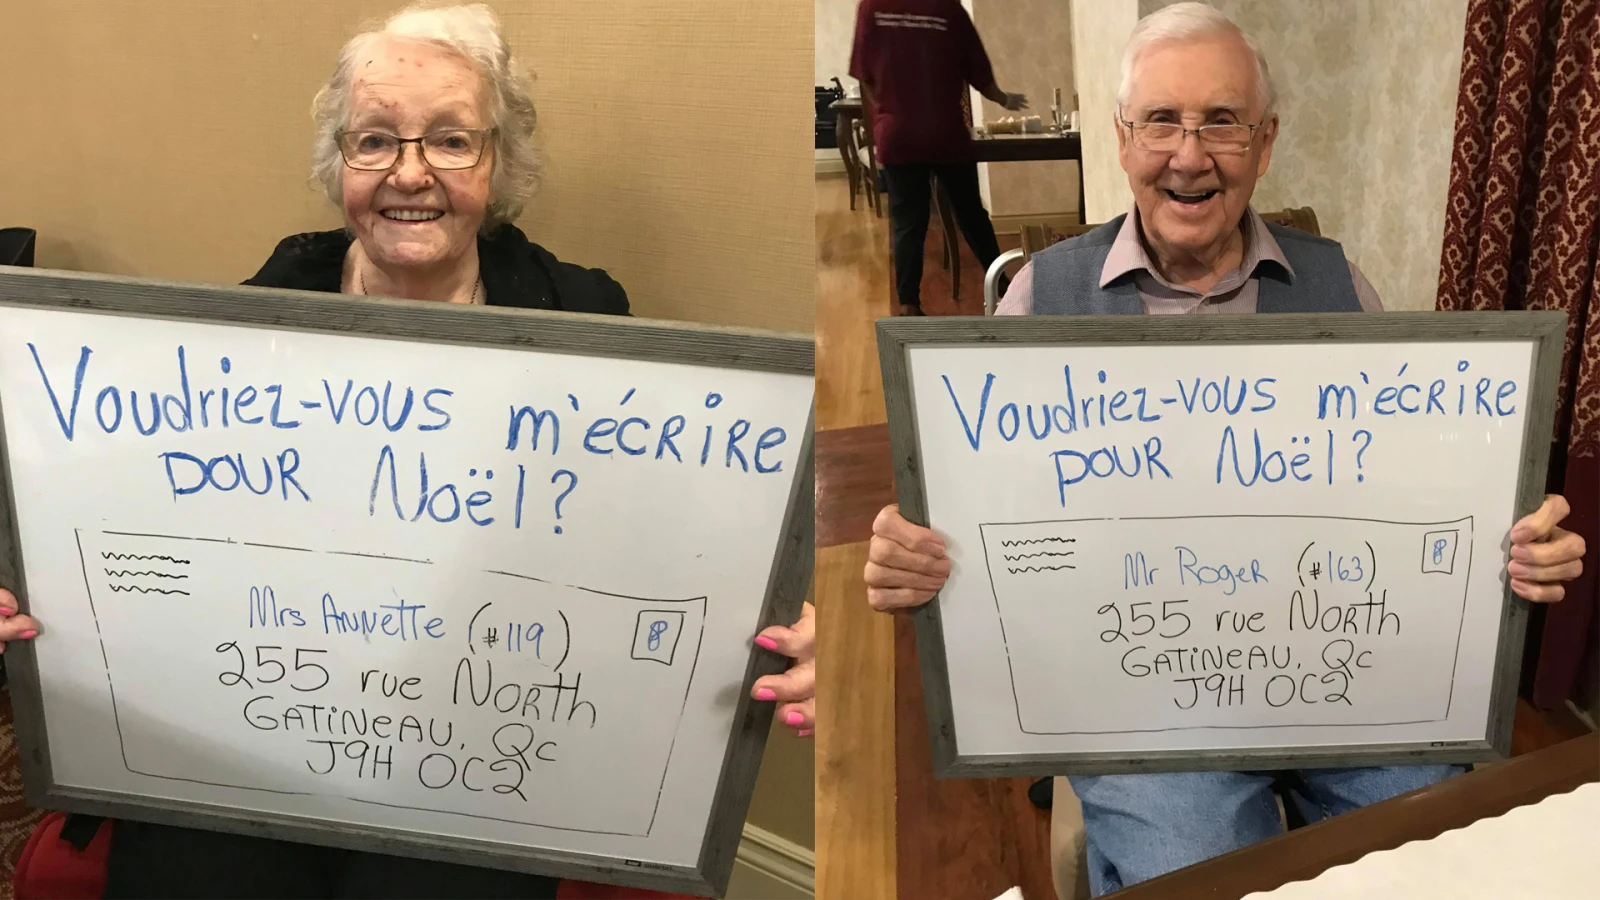 Voudriez-vous m'écrire
pour Noël?
Mrs Annette (#119)
255 rue North
Gatineau, Qc
J9H 0C2
Voudriez-vous m'écrire
pour Noël?
Mr Roger (#163)
255 rue North
Gatineau, Qc
J9H 0C2